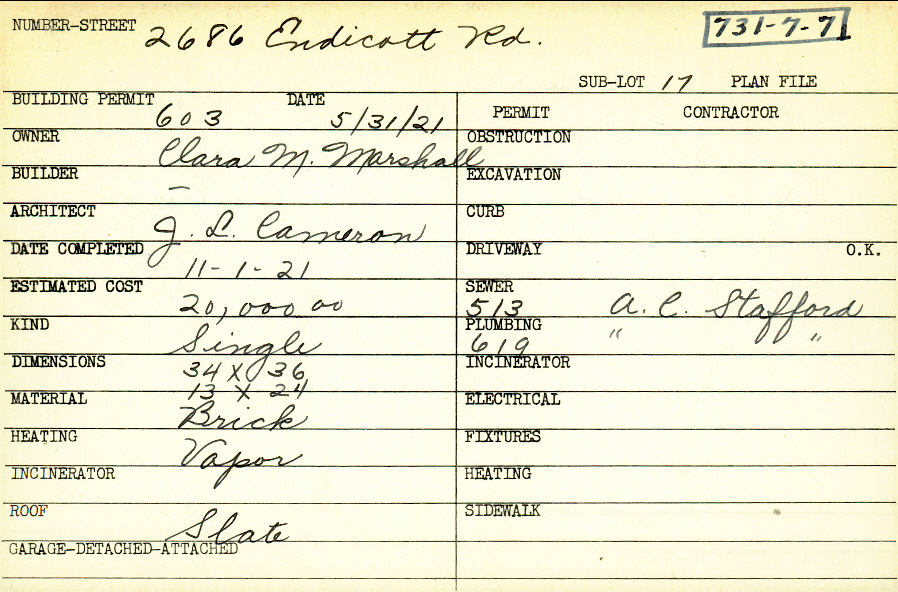 NUMBER-STREET 2686 Endicott Rd. 731-7-7
SUB-LOT 17 PLAN FILE
BUILDING PERMIT 603 DATE 5/31/21
PERMIT CONTRACTOR
OWNER Clara M. Marshall
OBSTRUCTION
BUILDER —
EXCAVATION
ARCHITECT J. L. Cameron
CURB
DATE COMPLETED 11-1-21
DRIVEWAY O.K.
ESTIMATED COST 20,000 00
SEWER 513 A. C. Stafford
KIND Single
PLUMBING 619 " "
DIMENSIONS 34 X 36
13 X 24
INCINERATOR
MATERIAL Brick
ELECTRICAL
HEATING Vapor
FIXTURES
INCINERATOR
HEATING
ROOF Slate
SIDEWALK
GARAGE-DETACHED-ATTACHED